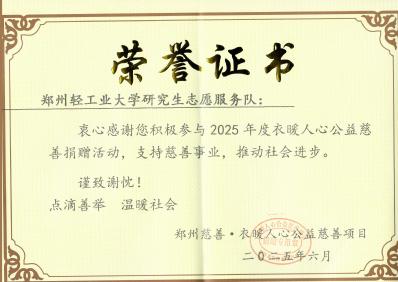 荣誉证书
郑州轻工业大学研究生志愿服务队：
衷心感谢您积极参与2025年度衣暖人心公益慈
善捐赠活动，支持慈善事业，推动社会进步。
谨致谢忱！
点滴善举 温暖社会
郑州慈善·衣暖人心公益慈善项目
二〇二五年六月